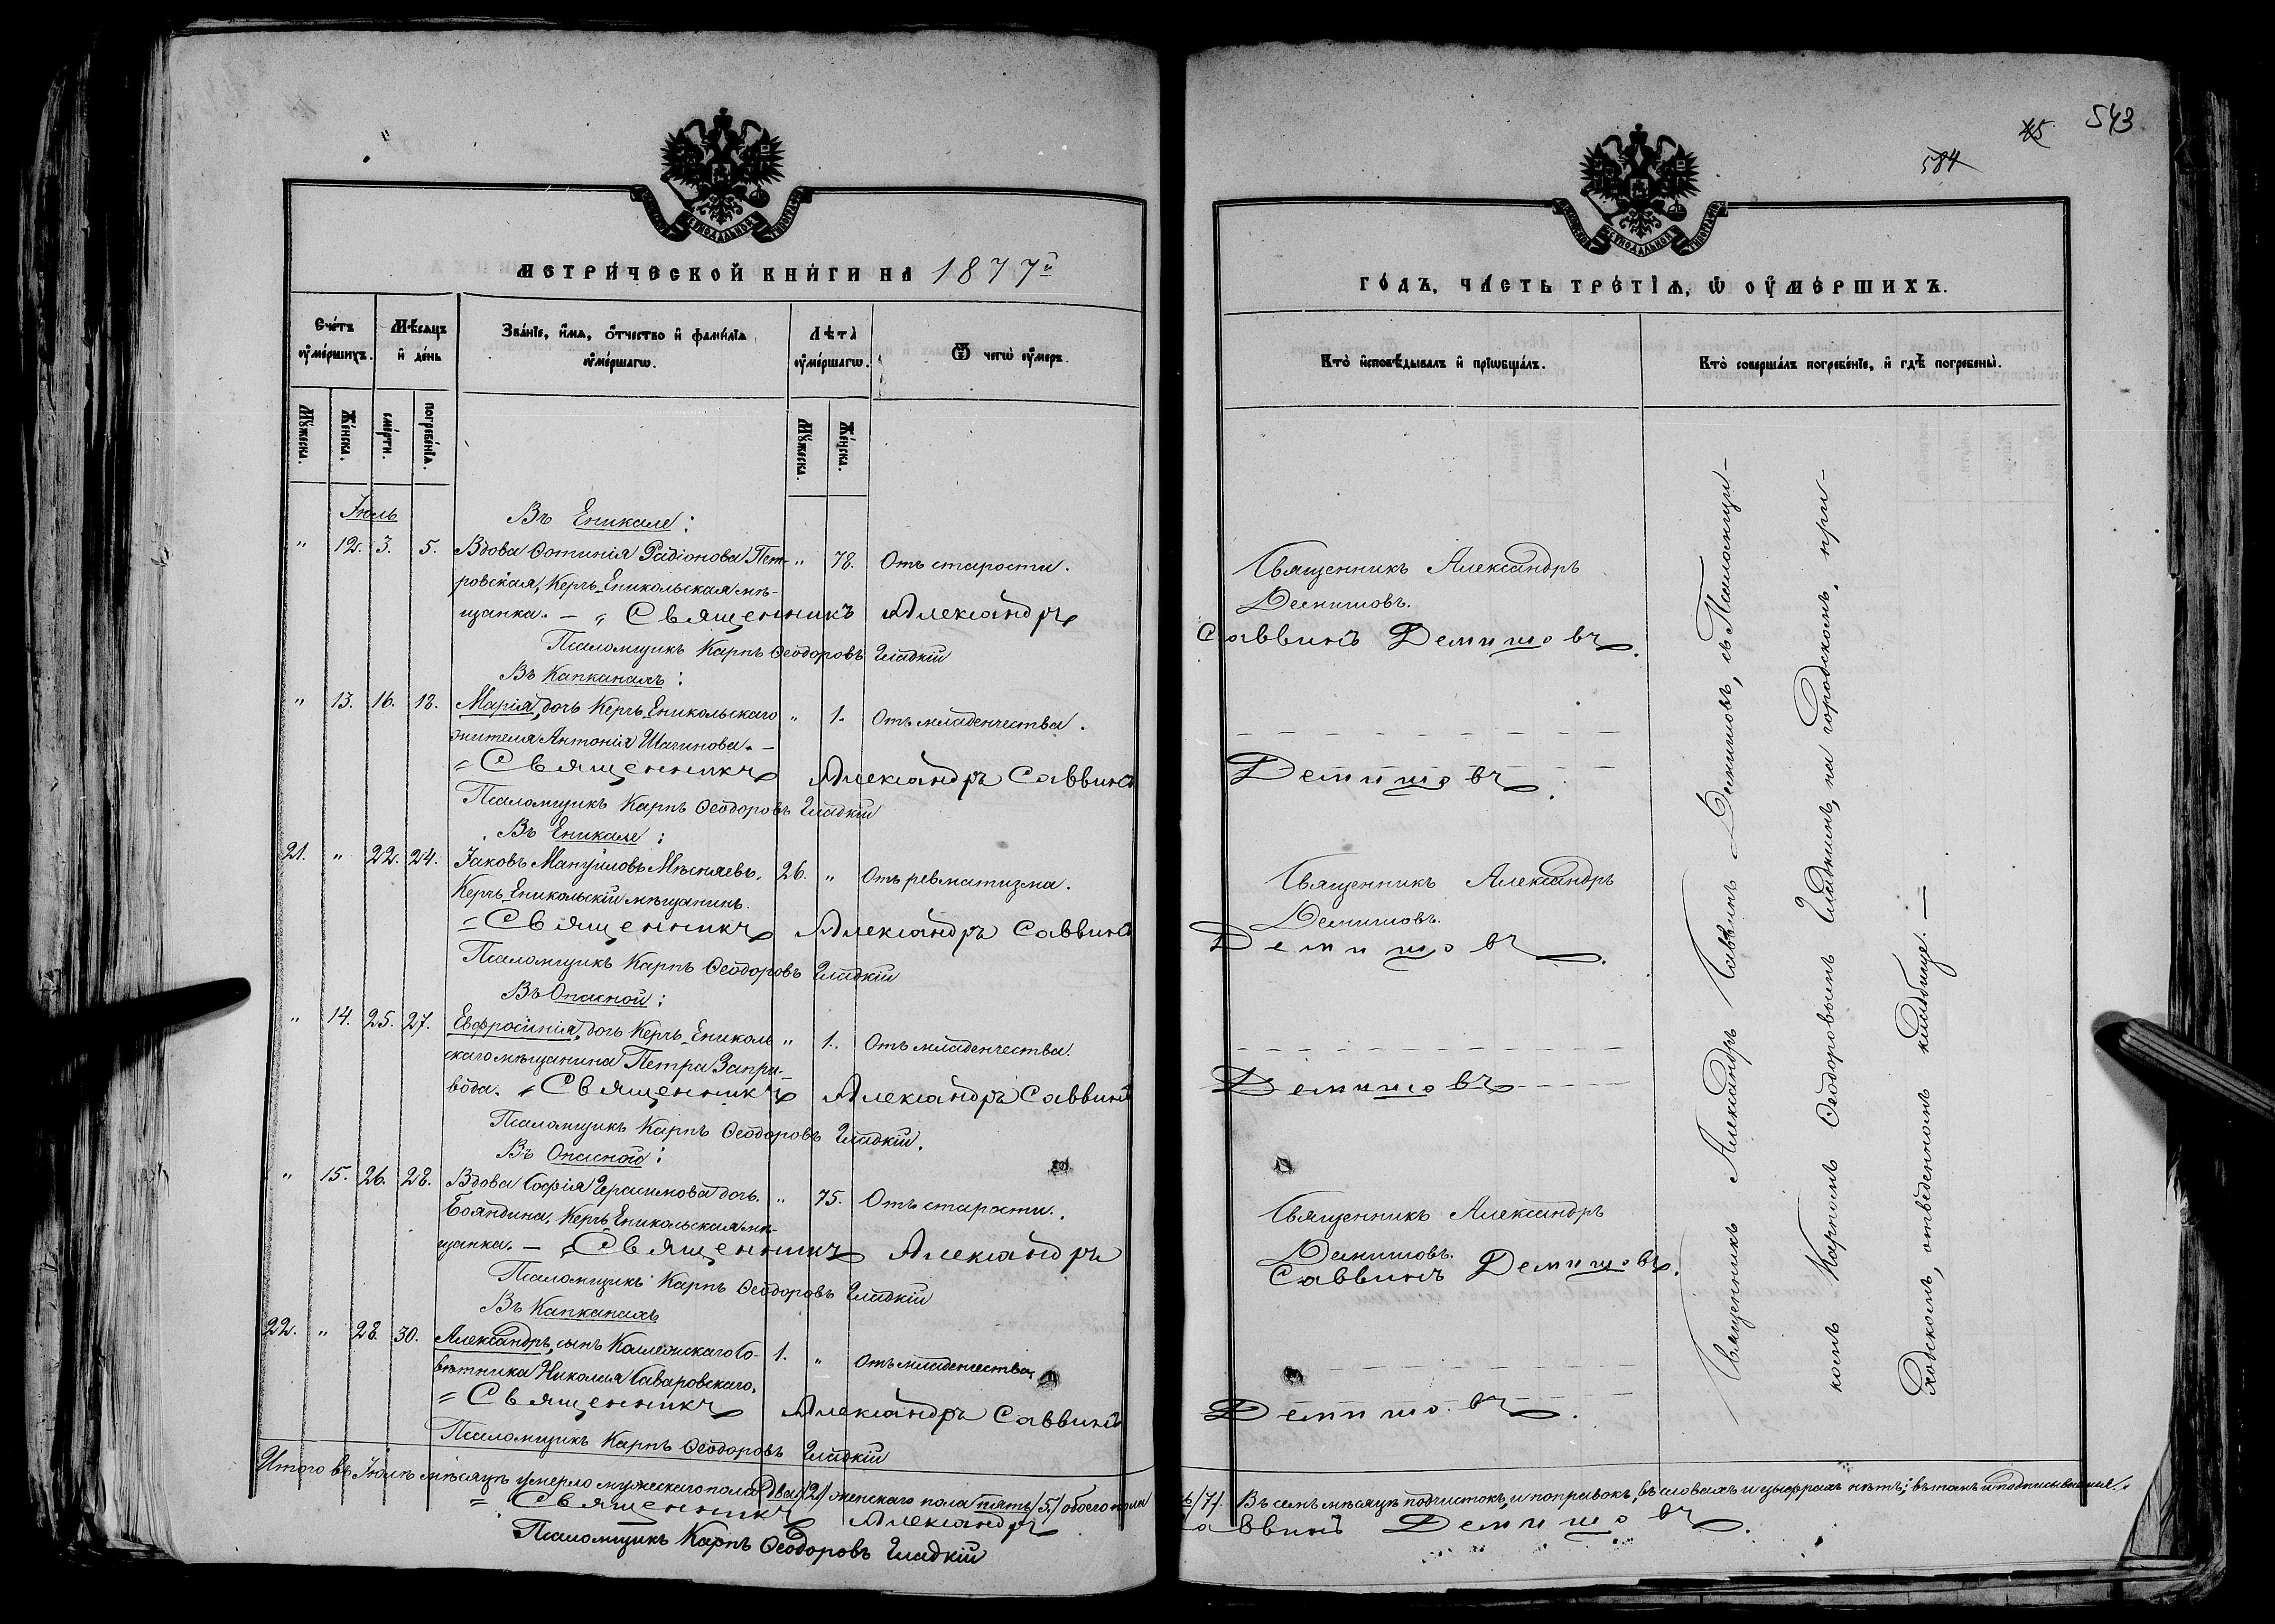 МЕТРИЧЕСКОЙ КНИГИ НА 1877й
Счетъ умершихъ.
Мѣсяцъ и день
Званіе, имя, отчество и фамилія умершагѡ.
Лѣта умершагѡ.
Ѿ чегѡ умеръ.
Мужеска.
Женска.
смерти.
погребенія.
Мужеска.
Женска.
Іюль
Въ Еникале:
" 12. 3. 5. Вдова Ѳотинія Радіонова Пет- " 78. Отъ старости.
ровская, Керчь-Еникольская мѣ-
щанка. — „ Священникъ Александръ
Псаломщикъ Карпъ Ѳеодоровъ Гладкій
Въ Капканахъ:
" 13. 16. 18. Марія, дочь Керчь-Еникольскаго " 1. Отъ младенчества.
жителя Антонія Шачинова. —
„ Священникъ Александръ Саввинъ
Псаломщикъ Карпъ Ѳеодоровъ Гладкій
Въ Еникале:
21. " 22. 24. Іаковъ Мануйловъ 26. " Отъ ревматизма.
Керчь-Еникольскій мѣщанинъ.
„ Священникъ Александръ Саввинъ
Псаломщикъ Карпъ Ѳеодоровъ Гладкій
Въ Опасной:
" 14. 25. 27. Евфросинія, дочь Керчь-Ениколь- " 1. Отъ младенчества.
скаго мѣщанина Петра Запри-
вода. „ Священникъ Александръ Саввинъ
Псаломщикъ Карпъ Ѳеодоровъ Гладкій.
Въ Опасной:
" 15. 26. 28. Вдова Софія Герасимова дочь " 75. Отъ старости.
Бояндина, Керчь-Еникольская мѣ-
щанка. — „ Священникъ Александръ
Псаломщикъ Карпъ Ѳеодоровъ Гладкій
Въ Капканахъ
22. " 28. 30. Александръ, сынъ Коллежскаго Со- 1. " Отъ младенчества
вѣтника Николая Саваровскаго.
„ Священникъ Александръ Саввинъ
Псаломщикъ Карпъ Ѳеодоровъ Гладкій
Итого въ Іюлѣ мѣсяцѣ умерло мужескаго пола два /2/ женскаго пола пять /5/ обоего пола
„ Священникъ Александръ
Псаломщикъ Карпъ Ѳеодоровъ Гладкій
543
584
ГОДЪ, ЧАСТЬ ТРЕТІѦ, Ѡ ОУМЕРШИХЪ.
Кто исповѣдывалъ и прїѡбщалъ.
Кто совершалъ погребеніе, и гдѣ погребены.
Священникъ Александръ
Демишовъ.
Саввинъ Демишовъ.
Демишовъ.
Священникъ Александръ
Демишовъ.
Демишовъ.
Демишовъ
Священникъ Александръ
Демишовъ.
Саввинъ Демишовъ.
Демишовъ.
Священникъ Александръ Саввинъ Демишовъ, съ Псаломщи-
комъ Карпомъ Ѳеодоровымъ Гладкимъ, на городскомъ, при-
ходскомъ, отведенномъ кладбищѣ. —
/7/. Въ семъ мѣсяцѣ подчистокъ и поправокъ, въ словахъ и цыфрахъ нѣтъ; въ томъ и подписываемся.
аввинъ Демишовъ.